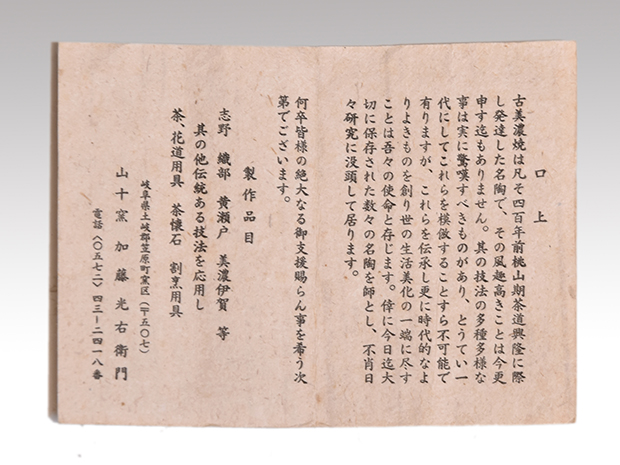 口上
古美濃焼は凡そ四百年前桃山期茶道興隆に際
し発達した名陶で、その風趣高きことは今更
申す迄もありません。其の技法の多種多様な
事は実に驚嘆すべきものがあり、とうてい一
代にしてこれらを模倣することすら不可能で
有りますが、これらを伝承し更に時代的なよ
りよきものを創り世の生活美化の一端に尽す
ことは吾々の使命と存じます。倖に今日迄大
切に保存された数々の名陶を師とし、不肖日
々研究に没頭して居ります。
何卒皆様の絶大なる御支援賜らん事を希う次
第でございます。
製作品目
志野 織部 黄瀬戸 美濃伊賀 等
其の他伝統ある技法を応用し
茶、花道用具 茶懐石 割烹用具
岐阜県土岐郡笠原町窯区(〒五〇七)
山十窯 加藤光右衛門
電話(〇五七二)四三ー二四一八番